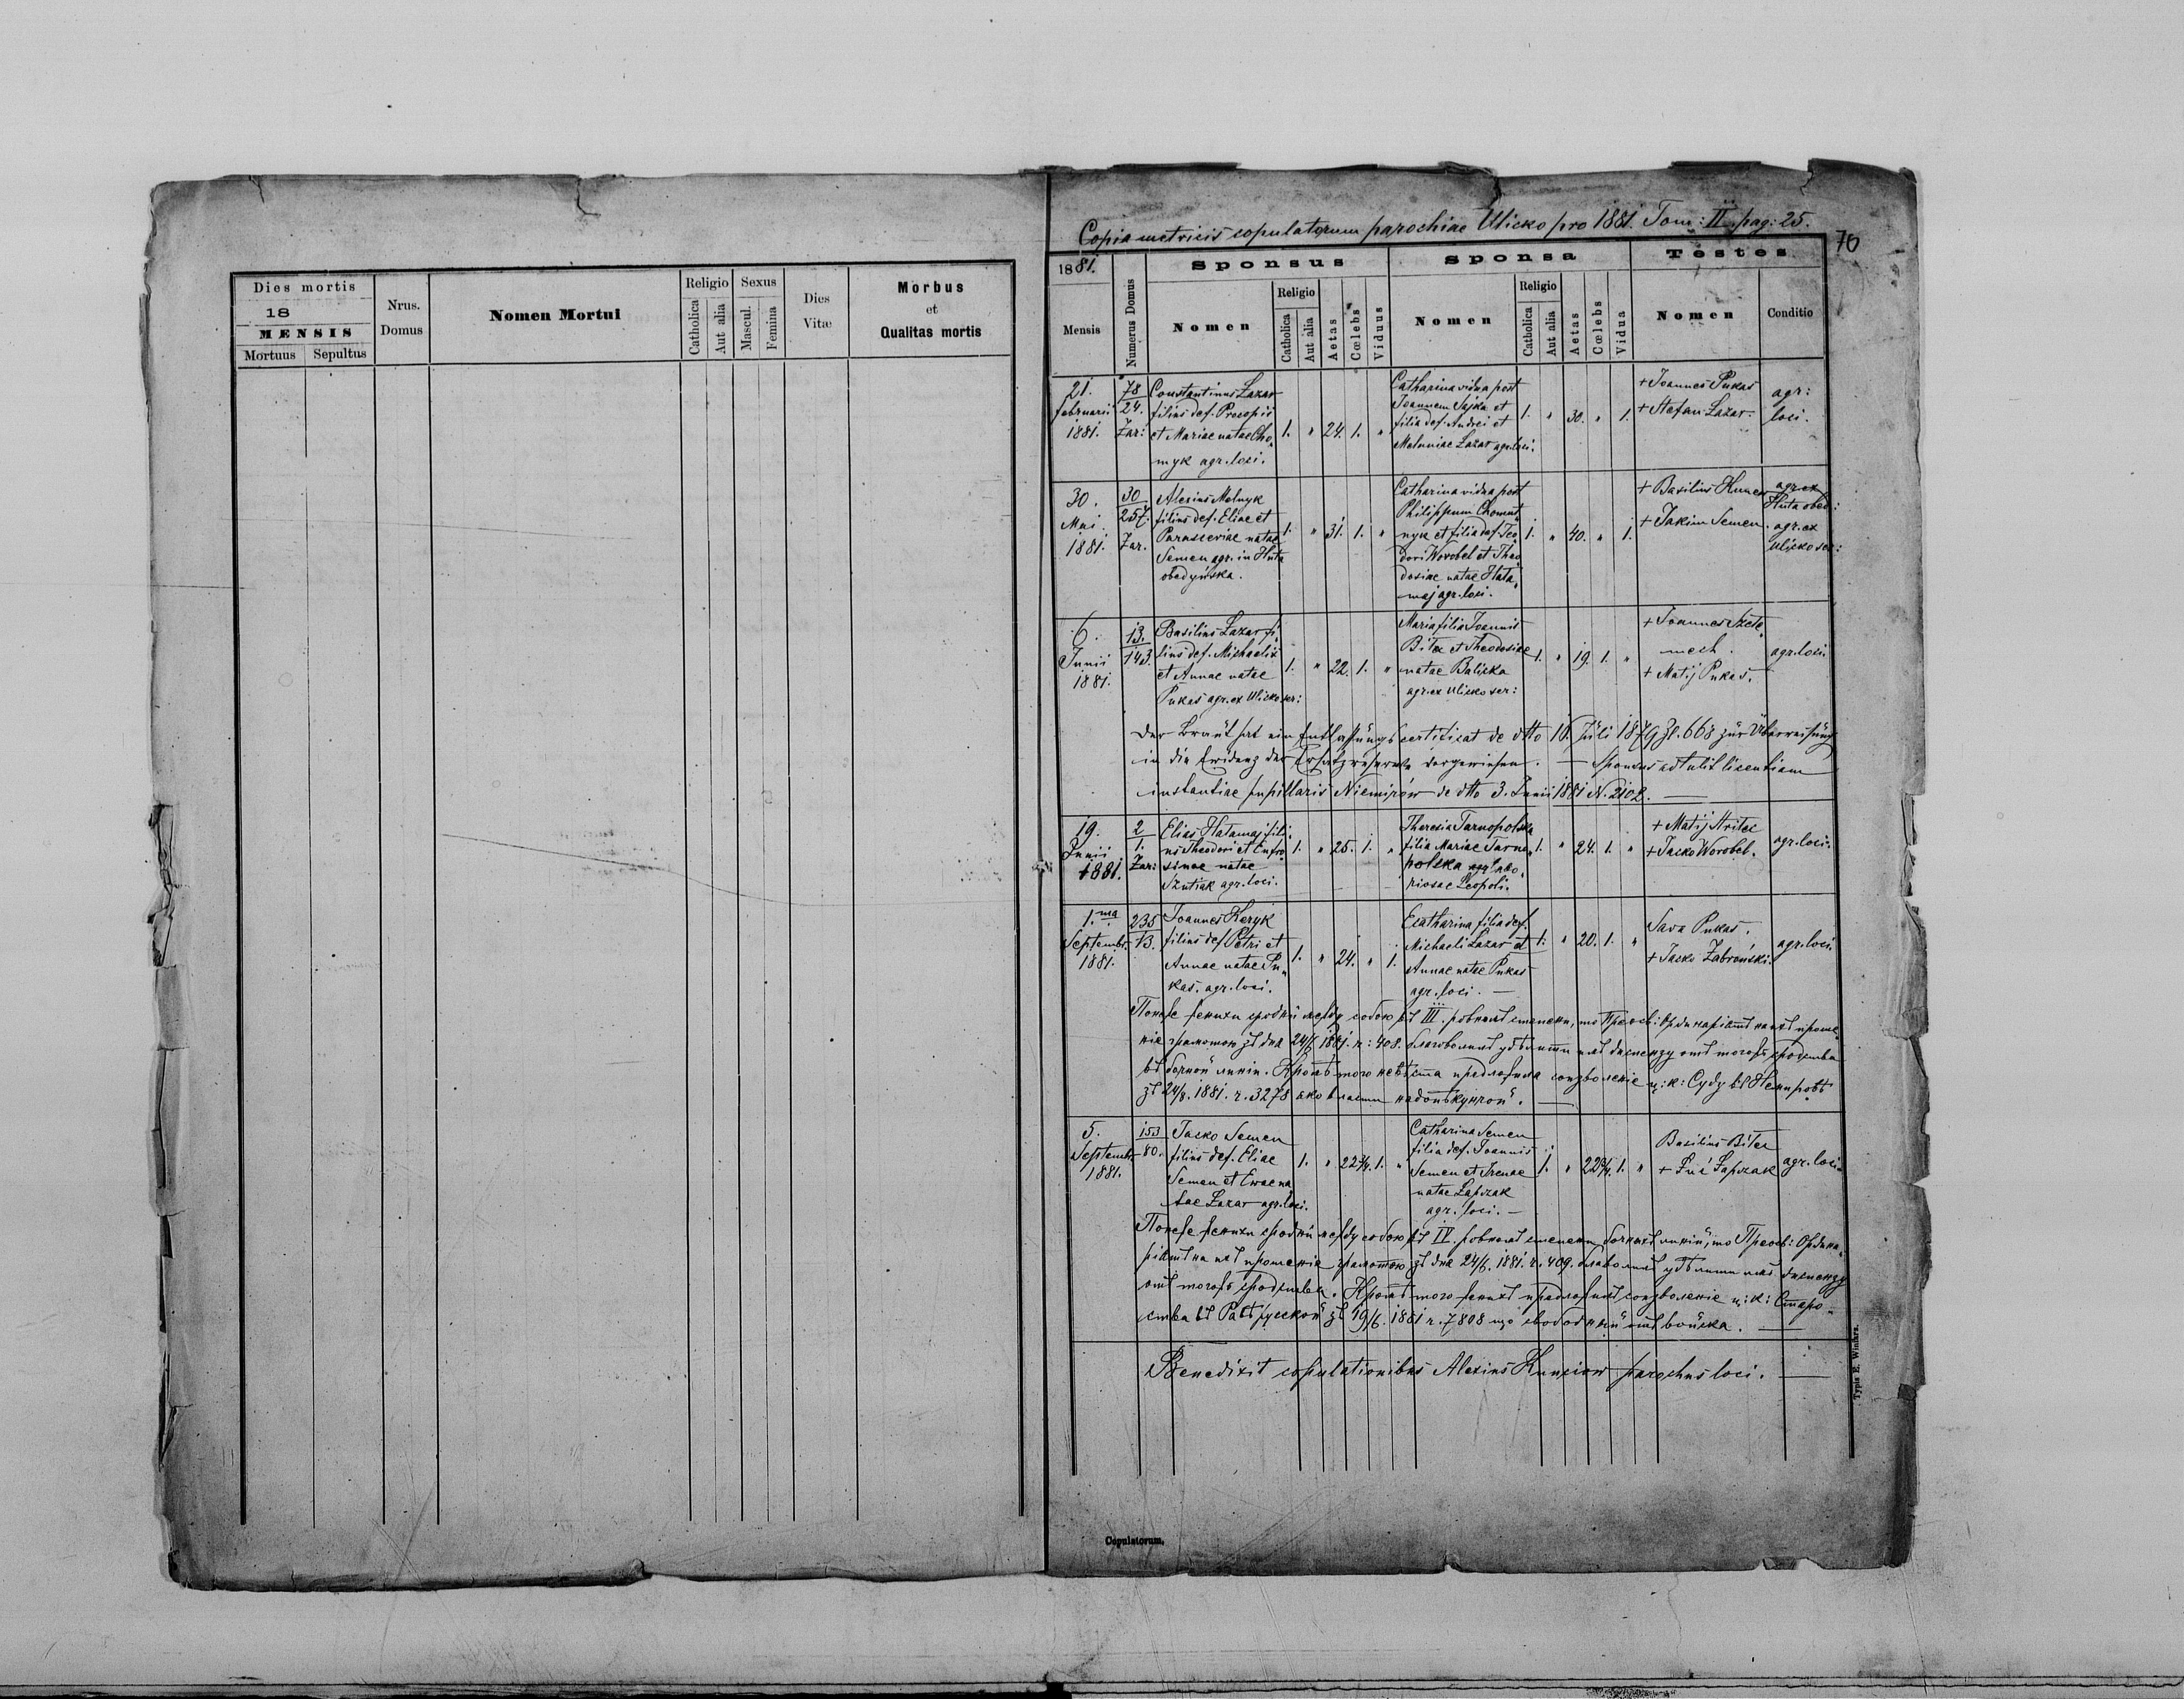 Dies mortis
18
MENSIS
Mortuus Sepultus
Nrus.
Domus
Nomen Mortui
Religio
Catholica
Aut alia
Sexus
Mascul.
Femina
Dies
Vitæ
Morbus
et
Qualitas mortis
Copia metricis copulatorum parochiae Ulicko pro 1881. Tom: II. pag: 25.
70
1881.
Mensis
Numerus Domus
Sponsus
Nomen
Religio
Catholica
Aut alia
Aetas
Cœlebs
Viduus
Sponsa
Nomen
Religio
Catholica
Aut alia
Aetas
Cœlebs
Vidua
Testes
Nomen
Conditio
21.
februarii
1881.
78
24.
Zar:
Constantinus Lazar
filius def. Procopii
et Mariae natae Cho„
myk agr. loci.
1. " 24. 1. "
Catharina vidua post
Joannem Sajka et
filia def. Andrei et
Melaniae Lazar agr. loci.
1. " 30. " 1.
+ Joannes Pukas
+ Stefan Lazar
agr:
loci.
30.
Mai.
1881.
30
257.
Zar.
Alexius Melnyk
filius def. Eliae et
Parasceviae natae
Semen agr. in Huta
obedyńska.
1. " 31. 1. "
Catharina vidua post
Philippum Chomut„
nyk et filia def. Teo„
dori Worobel et Theo„
dosiae natae Hata„
maj agr. loci.
1. " 40. " 1.
+ Basilius Kunex
+ Jakim Semen.
agr. ex
Huta obed:
agr. ex
Ulicko ser:
6.
Junii
1881.
13.
143.
Basilius Lazar fi„
lius def. Michaelis
et Annae natae
Pukas agr. ex Ulicko ser:
1. " 22. 1. "
Maria filia Joannis
Bilex et Theodosiae
natae Baliska
agr. ex Ulicko ser:
1. " 19. 1. "
+ Joannes Szele„
mech.
+ Matij Pukas.
agr. loci.
Der Bräut hat ein Entlassungscertificat de dtto 16. Juli 1879 Zl. 668 zur Überweisung
in die Evidenz der Ersatzreserve vorgewiesen. — Sponsus adtulit licentiam
instantiae pupillaris Niemirów de dtto 3. Junii 1881 N. 2102. —
19.
Junii
1881.
2
1.
Zar:
Elias Hatamaj fili„
us Theodori et Eufro„
sinae natae
Szutiak agr. loci.
1. " 25. 1. "
Theresia Tarnopolska
filia Mariae Tarno„
polska labo„
riosae Leopoli.
1. " 24. 1. "
+ Matij Hritex
+ Jacko Worobel.
agr. loci.
1.ma
Septembr.
1881.
235
13.
Joannes Keryk
filius def. Petri et
Annae natae Pu„
kas. agr. loci.
1. " 24. " 1.
Ecatharina filia def.
Michaeli Lazar et
Annae natae Pukas
agr. loci. —
1. " 20. 1. "
Sava Pukas.
+ Jacko Zabroński.
agr. loci.
Понеже женихи сродни̂ между собою въ III. ровномъ степени, то Преосв: Ординаріятъ на ихъ проше„
ніе грамотою зъ дня 24/6 1881. ч: 408. благоволилъ удѣлити имъ диспензу отъ тогожъ сродства
въ бочнои̂ линіи. Кромѣ того невѣста предложила соизволеніе ц: к: Суду въ Немировѣ
зъ 24/8. 1881. ч. 3278 яко власти надопѣкунчои̂. —
5.
Septembr.
1881.
153
80.
Jacko Semen
filius def. Eliae
Semen et Evae na„
tae Lazar agr. loci.
1. " 22 3/4. 1. "
Catharina Semen
filia def. Joannis
Semen et Irenae
natae Łapszak
agr. loci. —
1. " 22 1. "
Basilius Bilex
+ Łuć Łapszak
agr. loci.
Понеже женихи сродни̂ между собою въ IV. ровномъ степени бочныхъ линіи̂, то Преосв: Ордина„
ріятъ на ихъ прошеніе грамотою зъ дня 24/6. 1881. ч. 409. благоволилъ удѣлити имъ диспензу
отъ тогожъ сродства. Кромѣ того женихъ предложилъ соизволеніе ц: к: Старо„
ства въ Равѣ русскои̂ зъ 19/6. 1881 ч. 7808 що свободный отъ во̂йска. —
Benedixit copulationibus Alexius Kunciow parochus loci. —
Typis E. Winiarz.
Copulatorum.